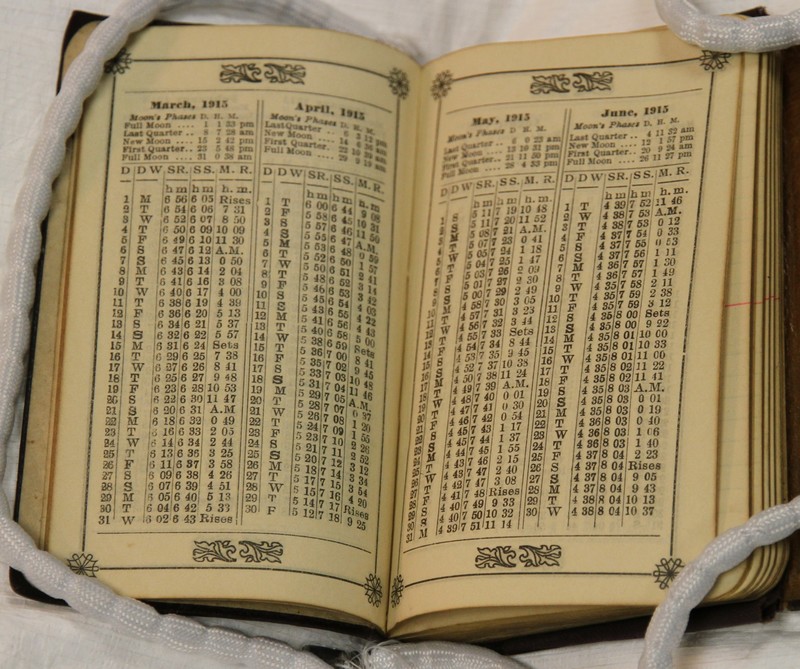 March, 1915
Moon's Phases D. H. M.
Full Moon .... 1 1 33 pm
Last Quarter .. 8 7 28 am
New Moon .... 15 2 42 pm
First Quarter.. 23 5 48 pm
Full Moon .... 31 0 38 am
D D W SR. SS. M. R.
h m h m h. m.
1 M 6 56 6 05 Rises
2 T 6 54 6 06 7 31
3 W 6 52 6 07 8 50
4 T 6 50 6 09 10 09
5 F 6 49 6 10 11 30
6 S 6 47 6 12 A.M.
7 S 6 45 6 13 0 50
8 M 6 43 6 14 2 04
9 T 6 41 6 16 3 08
10 W 6 40 6 17 4 00
11 T 6 38 6 19 4 39
12 F 6 36 6 20 5 13
13 S 6 34 6 21 5 37
14 S 6 32 6 22 5 57
15 M 6 31 6 24 Sets
16 T 6 29 6 25 7 38
17 W 6 27 6 26 8 41
18 T 6 25 6 27 9 48
19 F 6 23 6 28 10 53
20 S 6 22 6 30 11 47
21 S 6 20 6 31 A.M
22 M 6 18 6 32 0 49
23 T 6 16 6 33 2 05
24 W 6 14 6 34 2 44
25 T 6 13 6 36 3 25
26 F 6 11 6 37 3 58
27 S 6 09 6 38 4 26
28 S 6 07 6 39 4 51
29 M 6 05 6 40 5 13
30 T 6 04 6 42 5 33
31 W 6 02 6 43 Rises
April, 1915
Moon's Phases D. H. M.
Last Quarter ..
New Moon ....
First Quarter ..
Full Moon ....
D D W SR. SS. M. R.
h m h m h. m
1 T 6 00 6 44 9 08
2 F 5 58 6 45 10 31
3 S 5 57 6 46 11 50
4 S 5 55 6 47 A.M.
5 M 5 53 6 48 0 59
6 T 5 52 6 50 1 57
7 W 5 50 6 51 2 41
8 T 5 48 6 52 3 14
9 F 5 46 6 53 3 42
10 S 5 45 6 54 4 03
11 S 5 43 6 55 4 22
12 M 5 41 6 56 4 43
13 T 5 40 6 58 5 00
14 W 5 38 6 59 Sets
15 T 5 36 7 00 8 41
16 F 5 35 7 02 9 45
17 S 5 33 7 03 10 48
18 S 5 31 7 04 11 46
19 M 5 29 7 05 A.M.
20 T 5 28 7 07 0 37
21 W 5 26 7 08 1 20
22 T 5 24 7 09 1 55
23 F 5 23 7 10 2 26
24 S 5 21 7 11 2 52
25 S 5 20 7 12 3 12
26 M 5 18 7 14 3 34
27 T 5 17 7 15 3 54
28 W 5 15 7 16 4 20
29 T 5 14 7 17 Rises
30 F 5 12 7 18 9 25
May, 1915
Moon's Phases D H. M.
Last Quarter .. 6 0 23 am
New Moon .... 13 10 31 pm
First Quarter.. 21 11 50 pm
Full Moon .... 28 4 33 pm
D D W SR. SS. M. R.
h m h m h. m.
1 S 5 11 7 19 10 48
2 S 5 11 7 20 11 52
3 M 5 08 7 21 A.M.
4 T 5 07 7 23 0 41
5 W 5 05 7 24 1 18
6 T 5 04 7 25 1 47
7 F 5 03 7 26 2 09
8 S 5 01 7 27 2 30
9 S 5 00 7 29 2 49
10 M 4 58 7 30 3 05
11 T 4 57 7 31 3 23
12 W 4 56 7 32 3 44
13 T 4 55 7 33 Sets
14 F 4 54 7 34 8 44
15 S 4 53 7 35 9 45
16 S 4 52 7 37 10 38
17 M 4 50 7 38 11 24
18 T 4 49 7 39 A.M.
19 W 4 48 7 40 0 01
20 T 4 47 7 41 0 30
21 F 4 46 7 42 0 54
22 S 4 45 7 43 1 17
23 S 4 45 7 44 1 37
24 M 4 44 7 45 1 55
25 T 4 43 7 46 2 15
26 W 4 43 7 47 2 40
27 T 4 42 7 47 3 08
28 F 4 41 7 48 Rises
29 S 4 40 7 49 9 33
30 S 4 40 7 50 10 32
31 M 4 39 7 51 11 14
June, 1915
Moon's Phases D. H. M.
Last Quarter .. 4 11 32 am
New Moon .... 12 1 57 pm
First Quarter.. 20 9 24 am
Full Moon .... 26 11 27 pm
D D W SR. SS. M. R.
h m h m h. m.
1 T 4 39 7 52 11 46
2 W 4 38 7 53 A.M.
3 T 4 38 7 53 0 12
4 F 4 37 7 54 0 33
5 S 4 37 7 55 0 53
6 S 4 37 7 56 1 11
7 M 4 36 7 57 1 30
8 T 4 36 7 57 1 49
9 W 4 35 7 58 2 11
10 T 4 35 7 59 2 38
11 F 4 35 7 59 3 12
12 S 4 35 8 00 Sets
13 S 4 35 8 00 9 22
14 M 4 35 8 01 10 00
15 T 4 35 8 01 10 33
16 W 4 35 8 01 11 00
17 T 4 35 8 02 11 22
18 F 4 35 8 02 11 41
19 S 4 35 8 03 A.M.
20 S 4 35 8 03 0 01
21 M 4 35 8 03 0 19
22 T 4 36 8 03 0 40
23 W 4 36 8 03 1 06
24 T 4 36 8 03 1 40
25 F 4 37 8 04 2 23
26 S 4 37 8 04 Rises
27 S 4 37 8 04 9 05
28 M 4 37 8 04 9 43
29 T 4 38 8 04 10 13
30 W 4 38 8 04 10 37